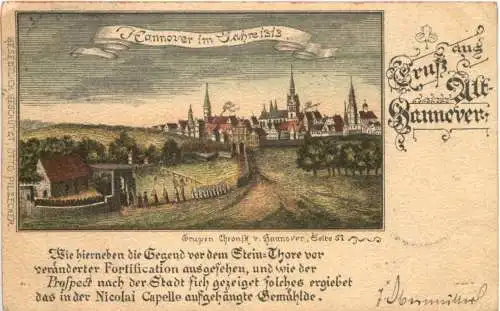 Hannover im Jahre 1313
Gruß aus
Alt-
Hannover.
GESETZLICH GESCHÜTZT
OTTO
Grupen Chronik v. Hannover, Seite 51
Wie hierneben die Gegend vor dem Stein-Thore vor
veränderter Fortification ausgesehen, und wie der
Prospect nach der Stadt sich gezeiget solches ergiebet
das in der Nicolai Capelle aufgehängte Gemählde.